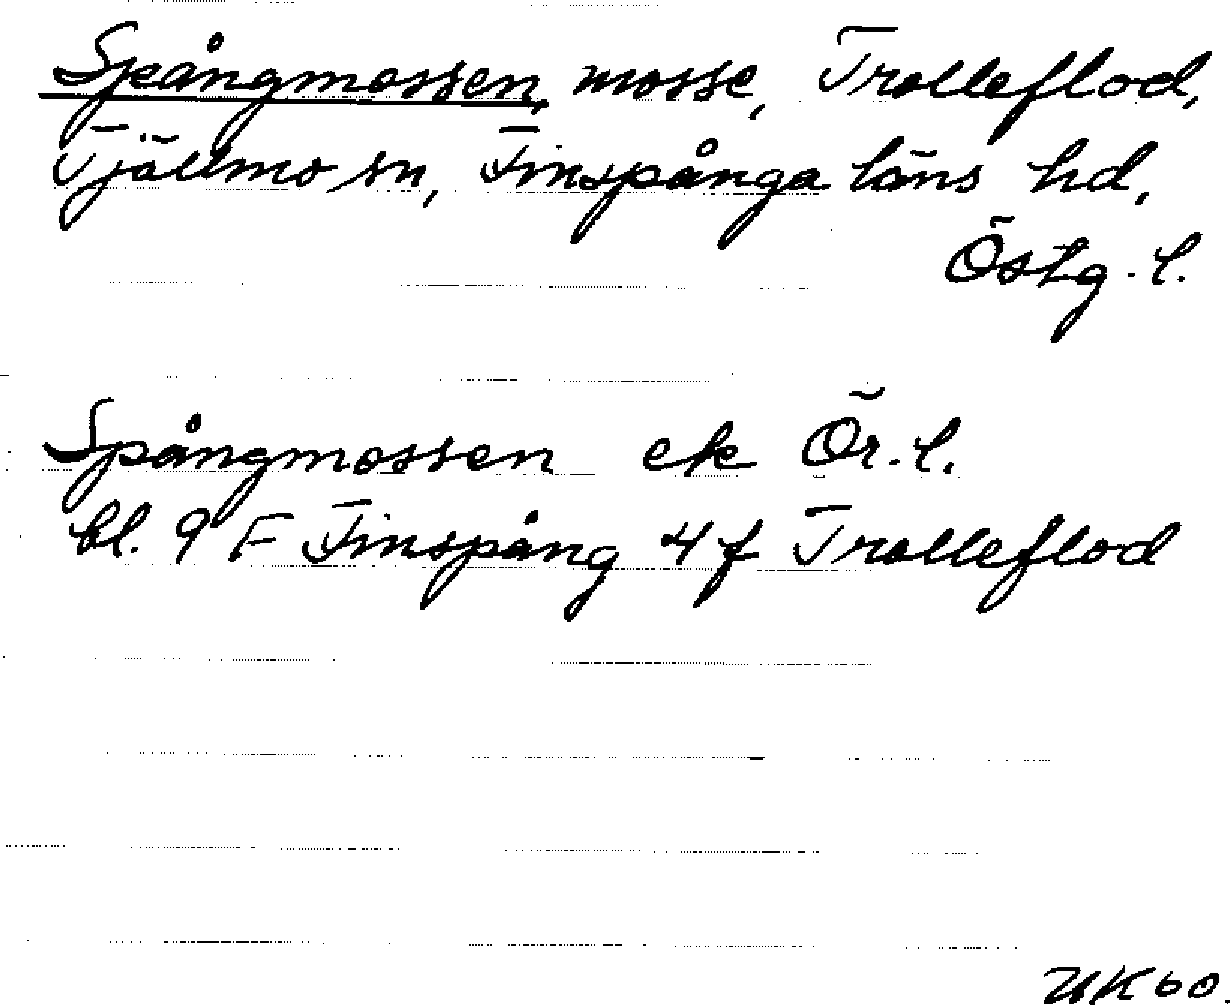 Spångmossen, mosse, Trolleflod,
Tjällmo sn, Finspånga läns hd,
Östg. l.
Spångmossen ek Ör. l.
bl. 9 F Finspång 4 f Trolleflod
UK 60.